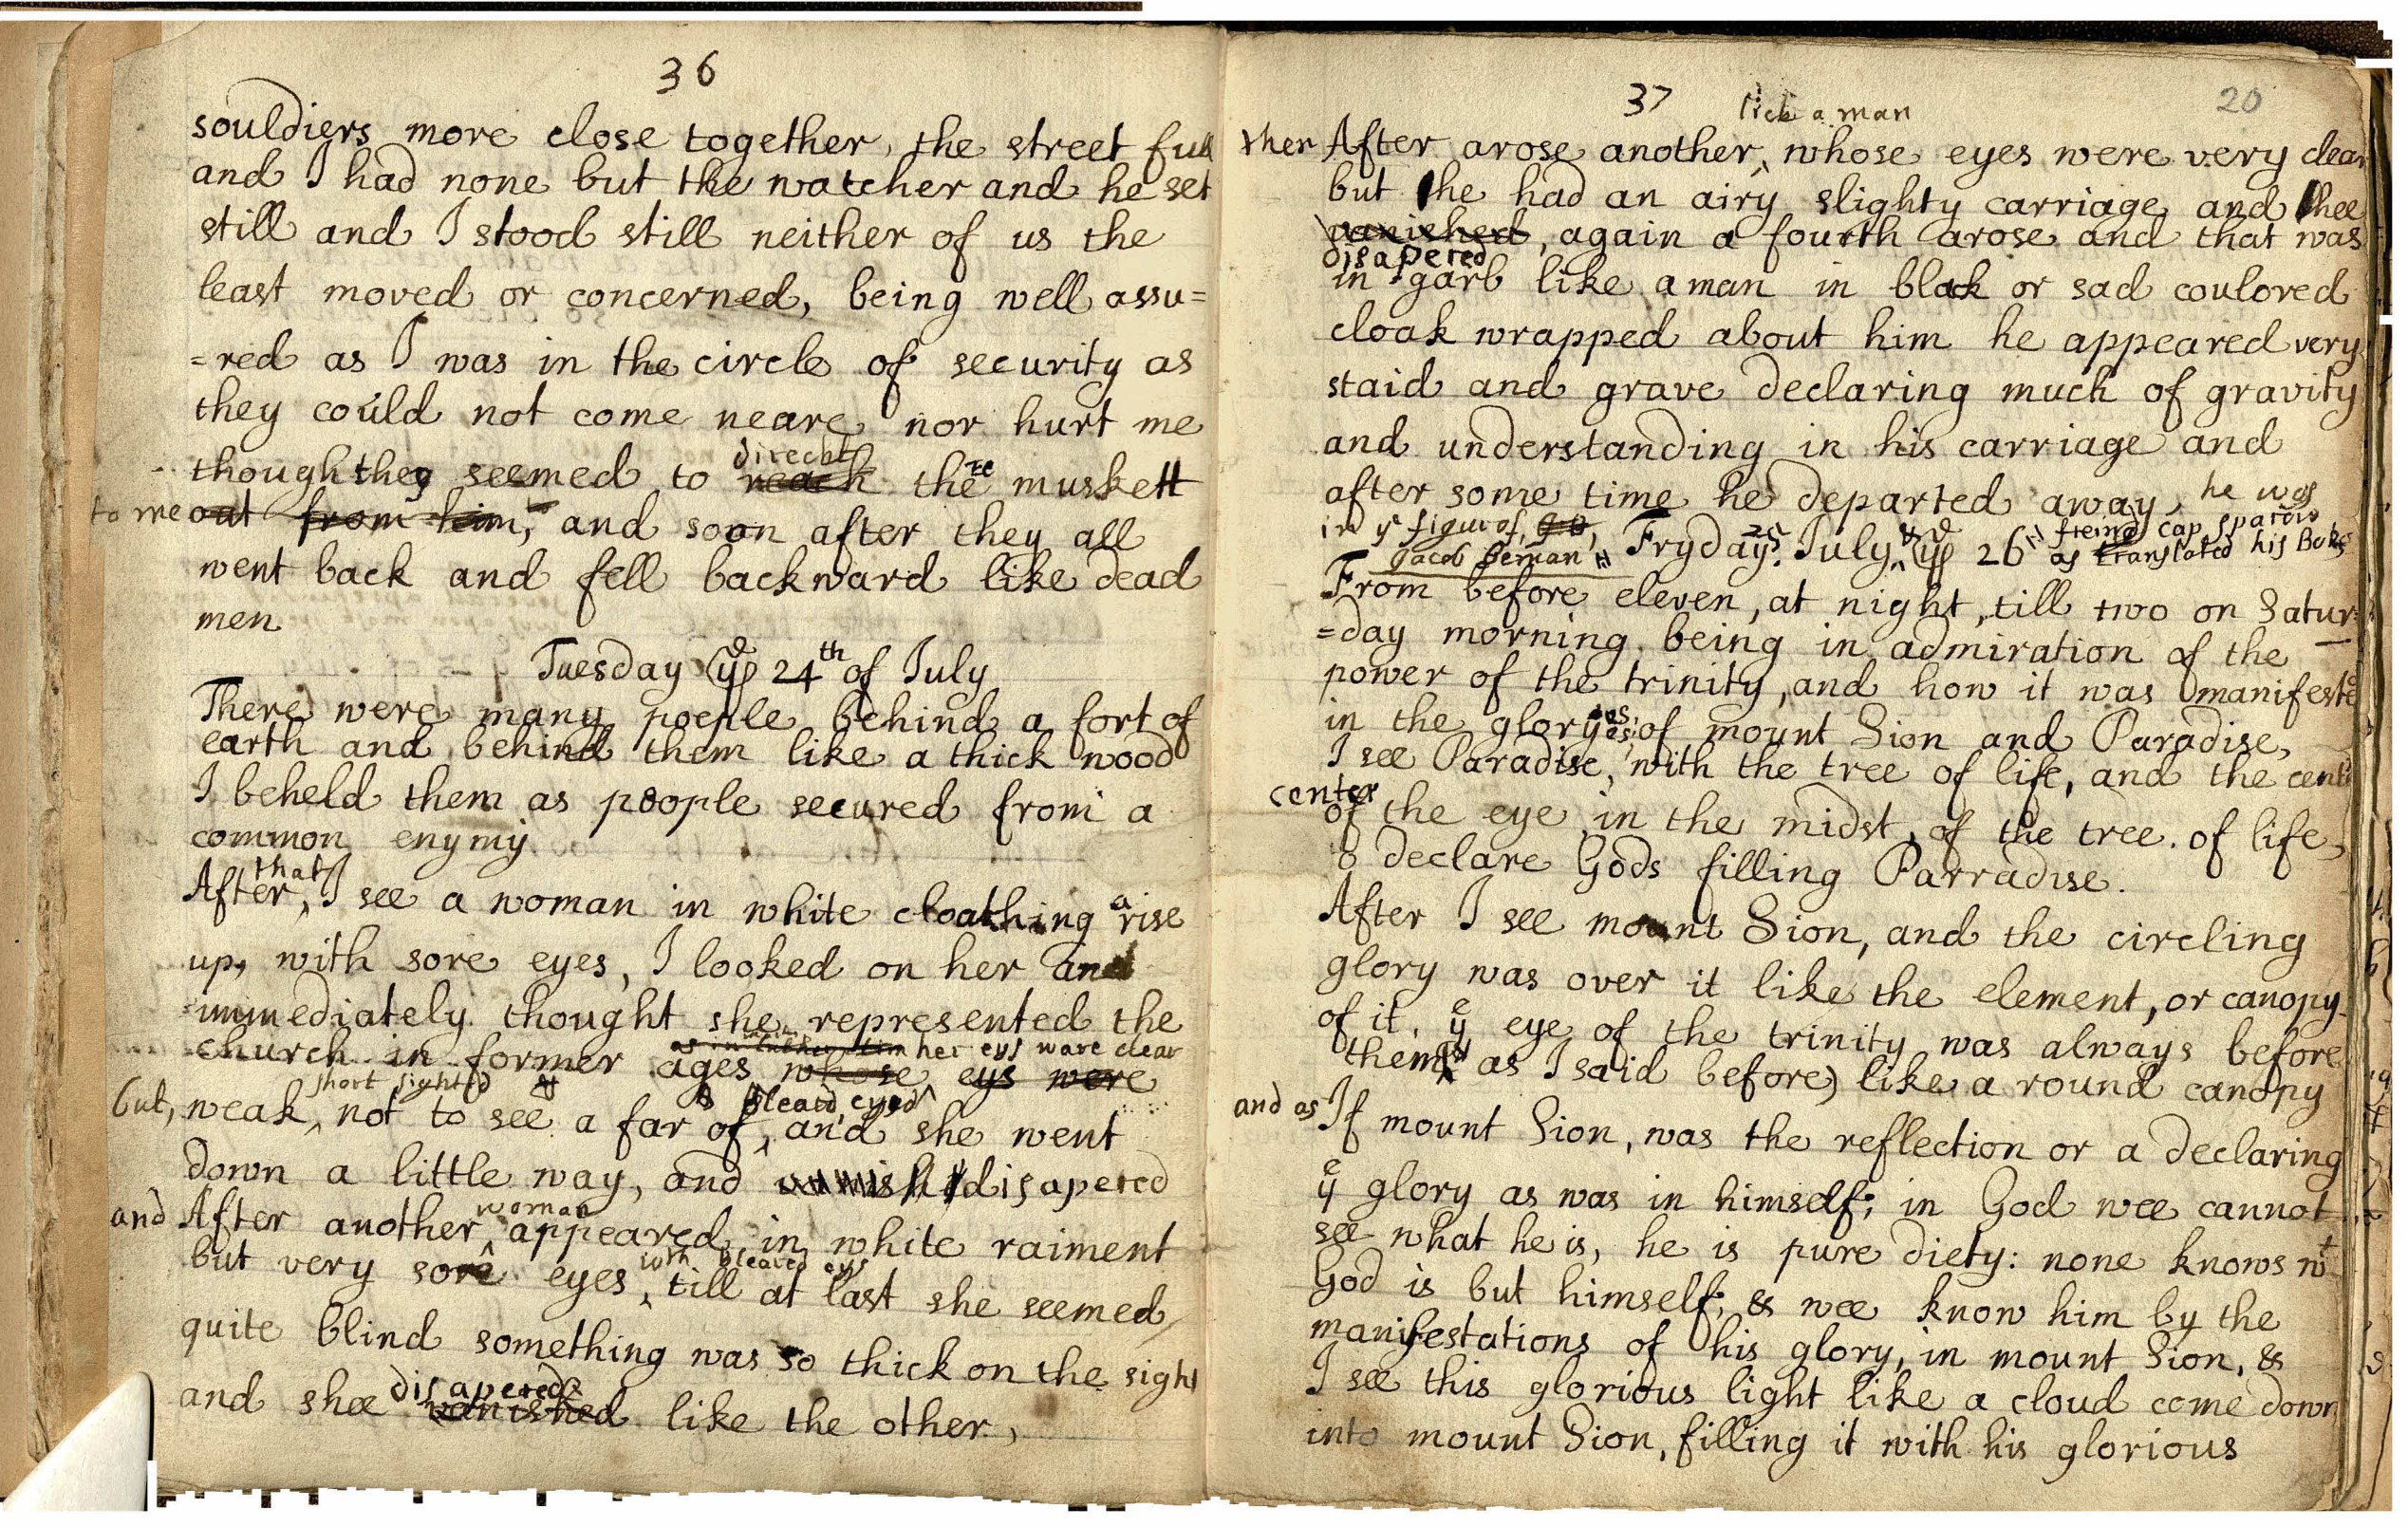 36
souldiers more close together, the street full
and I had none but the watcher and he set
still and I stood still neither of us the
least moved or concerned, being well assu=
=red as I was in the circle of security as
they could not come neare nor hurt me
direct
though they seemed to reach the muskett
to me out from him, and soon after they all
went back and fell backward like dead
men
Tuesday ye 24th of July
There were many poeple behind a fort of
earth and behind them like a thick wood
I beheld them as people secured from a
common enymy
that
After, I see a woman in white cloathing arise
up, with sore eyes, I looked on her and
immediately thought she represented the
her eys ware clear
church in former ages whose eys were
short sighted
but, weak, not to see a far of, and she went
bleard eyed
down a little way, and vanished disapered
woman
and After another appeared in white raiment
with bleared eys
but very sore eyes, till at last she seemed
quite blind something was so thick on the sight
disapered
and shee vanished like the other,
37
20
lick a man
then After arose another, whose eyes were very clear
but he had an airy slighty carriage and hee
vanished, again a fourth arose and that was
disapered
in garb like a man in black or sad coulored
cloak wrapped about him he appeared very
staid and grave declaring much of gravity
and understanding in his carriage and
after some time he departed away, he was
in ye figur of,
Jacob Beman
Fryday July ye 26
cap sparow
as translated his Boks
From before eleven, at night, till two on Satur=
=day morning being in admiration of the
power of the trinity, and how it was manifeste
in the glorys of mount Sion and Paradise,
I see Paradise, with the tree of life, and the cent
center
of the eye in the midst, of the tree. of life,
declare Gods filling Parradise.
After I see mount Sion, and the circling
glory was over it like the element, or canopy
of it, ye eye of the trinity was always before
them as I said before) like a round canopy
and as If mount Sion, was the reflection or a declaring
ye glory as was in himself; in God wee cannot
see what he is, he is pure diety: none knows wt
God is but himself; & wee know him by the
manifestations of his glory, in mount Sion, &
I see this glorious light like a cloud come down
into mount Sion, filling it with his glorious